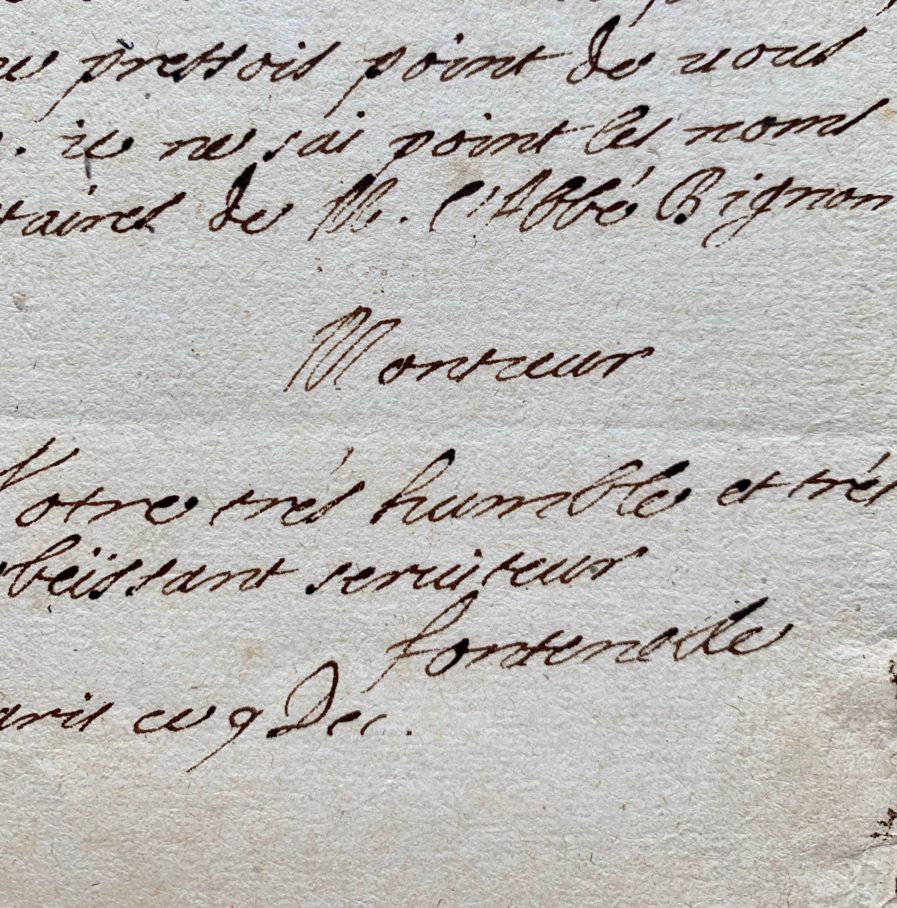 pressois point de vous
. je ne sai point les noms
taires de M. l'Abbé Bignon
Monsieur
Votre trés humble et trés
obëissant serviteur
fontenelle
aris ce 9 Dec.